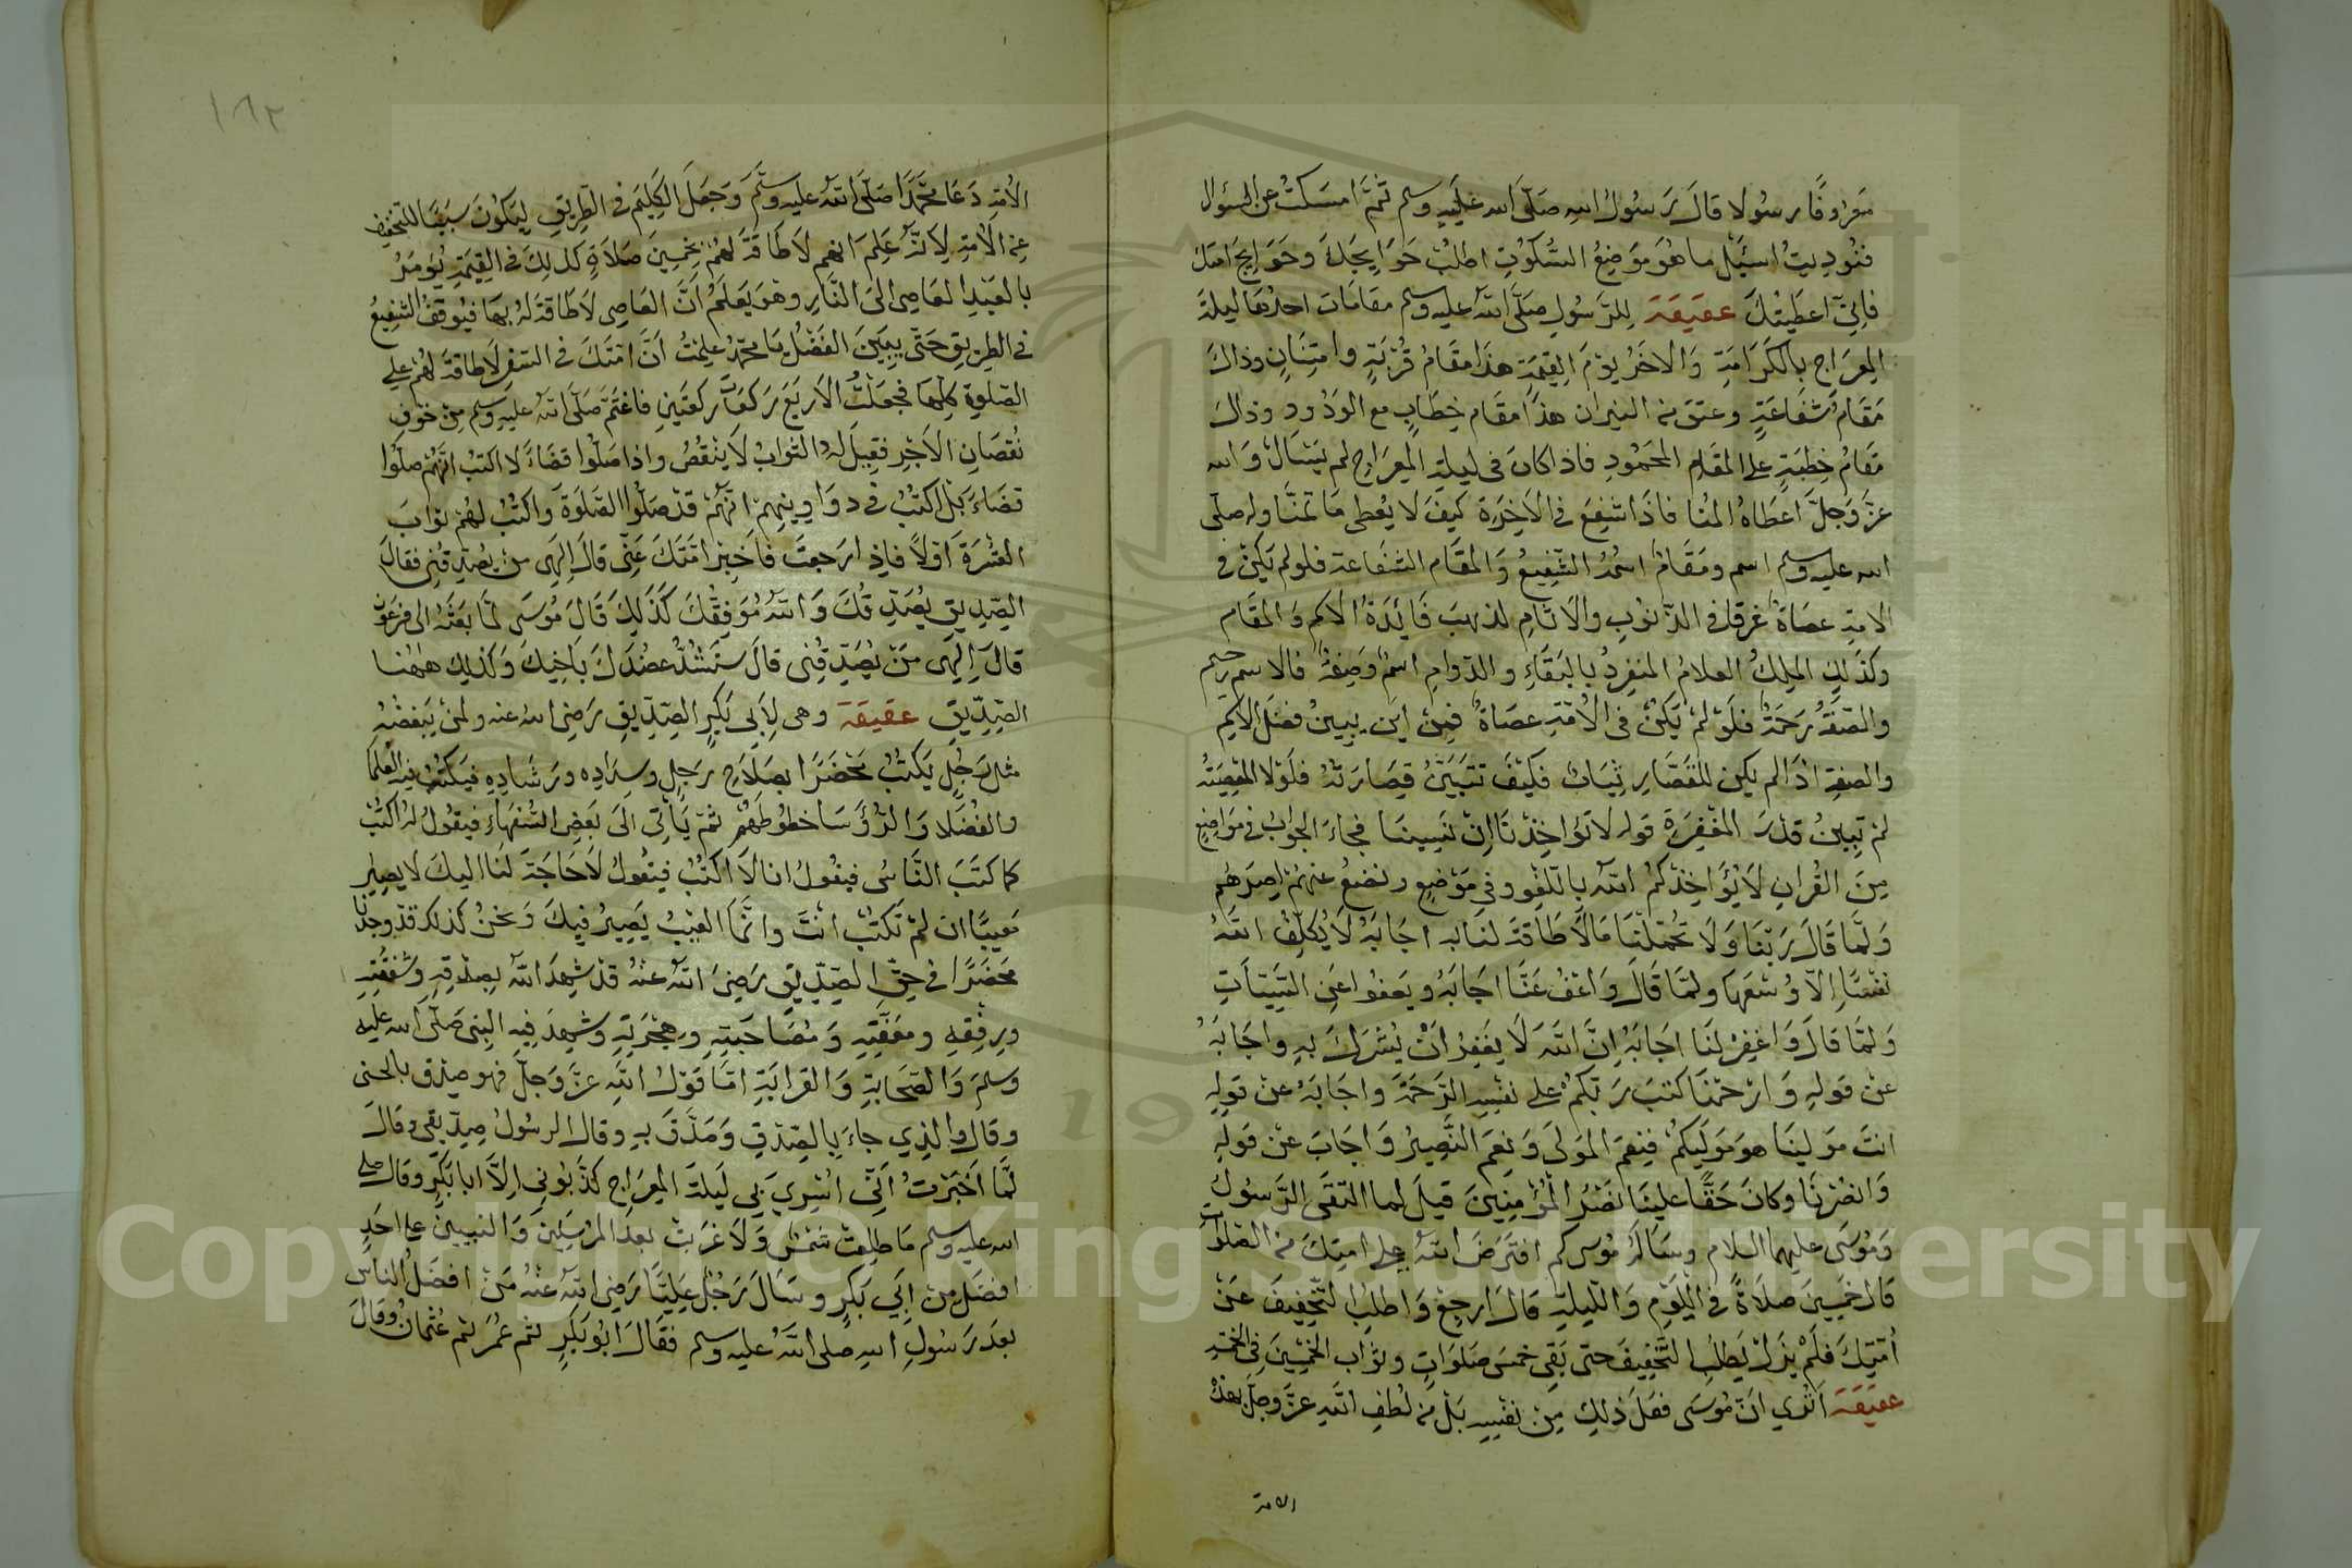 معروفا رسولا قال رسول الله صلى الله عليه وسلم ثم امسكت عن السؤال
فنوديت اسئل ما هو موضع السكوت اطلب حوايجك وحوايج امتك
فاني اعطيتك عقيقة للرسول صلى الله عليه وسلم مقامات احدها ليلة
المعراج بالكرامة والاخر يوم القيمة هذا مقام قربة وامتنان وذاك
مقام شفاعة وعتق من النيران هذا مقام خطاب مع الودود وذاك
مقام خطبة على المقام المحمود فاذا كان في ليلة المعراج لم يسال والله
عز وجل اعطاه المنا فاذا شفع في الاخرة كيف لا يعطى ما تمنا وله صلى
الله عليه وسلم اسم ومقام اسمه الشفيع والمقام الشفاعة فلو لم يكن في
الامة عصاة غرقا في الذنوب والاثام لذهب فائدة الاسم والمقام
وكذلك الملك العلام المنفرد بالبقاء والدوام اسم وصفة فالاسم رحيم
والصفة رحمة فلو لم يكن في الامة عصاة فمن اين يبين فضل الاسم
والصفة اذا لم يكن للقصار ثياب فكيف تتبين قصارته فلولا المعصية
لم تبين قدر المغفرة قوله لا تؤاخذنا ان نسينا فجاء الجواب في مواضع
من القران لا يؤاخذكم الله باللغو وفي موضع ونضع عنهم اصرهم
ولما قال ربنا ولا تحملنا ما لا طاقة لنا به اجابه لا يكلف الله
نفسا الا وسعها ولما قال واعف عنا اجابه ويعفوا عن السيئات
ولما قال واغفر لنا اجابه ان الله لا يغفر ان يشرك به واجابه
عن قوله وارحمنا كتب ربكم على نفسه الرحمة واجابه عن قوله
انت مولينا هو موليكم فنعم المولى ونعم النصير واجاب عن قوله
وانصرنا وكان حقا علينا نصر المؤمنين قيل لما التقى الرسول
وموسى عليهما السلام وساله موسى كم افترض الله على امتك من الصلوات
قال خمسين صلاة في اليوم والليلة قال ارجع واطلب التخفيف عن
امتك فلم يزل يطلب التخفيف حتى بقى خمس صلوات وثواب الخمسين في الخمسة
عقيقة اترى ان موسى فعل ذلك من نفسه بل من لطف الله عز وجل بهذه
الامة
١٨٢
الامة دعا محمدا صلى الله عليه وسلم وجعل الكليم في الطريق ليكون سببا للتخفيف
عن الامة لانه علم انهم لا طاقة لهم بخمسين صلاة كذلك في القيمة يؤمر
بالعبد العاصي الى النار وهو يعلم ان العاصي لا طاقة له بها فيوقف الشفيع
في الطريق حتى يبين الفضل يا محمد علمت ان امتك في السفر لا طاقة لهم على
الصلوة كلها فجعلت الاربع ركعات ركعتين فاغتم صلى الله عليه وسلم من خوف
نقصان الاجر فقيل له الثواب لا ينقص واذا صلوا قضاء لا اكتب انهم صلوا
قضاء بل اكتب في دواوينهم انهم قد صلوا الصلوة واكتب لهم ثواب
العشرة اولا فاذا رجعت فاخبر امتك عني قال الهي من يصدقني فقال
الصديق يصدقك والله موفقك كذلك قال موسى لما بعثه الى فرعون
قال الهي من يصدقني قال سنشد عضدك باخيك وكذلك ههنا
الصديق عقيقة وهى لابي بكر الصديق رضي الله عنه ولمن يبغضه
مثل رجل يكتب محضرا بصلاح رجل وسداده ورشاده فيكتب فيه العلما
والفضلا والرؤسا خطوطهم ثم ياتى الى بعض السفهاء فيقول له اكتب
كما كتب الناس فيقول انا لا اكتب فيقول لا حاجة لنا اليك لا يصير
معيبا ان لم تكتب انت وانما العيب يصير فيك ونحن كذلك قد وجدنا
محضرا في حق الصديق رضى الله عنه قد شهد الله بصدقه وشفقته
ورفقه ومعيته ومصاحبته وهجرته وشهد فيه النبى صلى الله عليه
وسلم والصحابة والقرابة اما قول الله عز وجل فهو صدق بالحسنى
وقال والذي جاء بالصدق وصدق به وقال الرسول صديقى وقال
لما اخبرت اني اسري بي ليلة المعراج كذبوني الا ابا بكر وقال صلى
الله عليه وسلم ما طلعت شمس ولا غربت بعد المرسلين والنبيين على احد
افضل من ابي بكر وسال رجل عليا رضى الله عنه من افضل الناس
بعد رسول الله صلى الله عليه وسلم فقال ابو بكر ثم عمر ثم عثمان وقال
Copyright © King Saud University